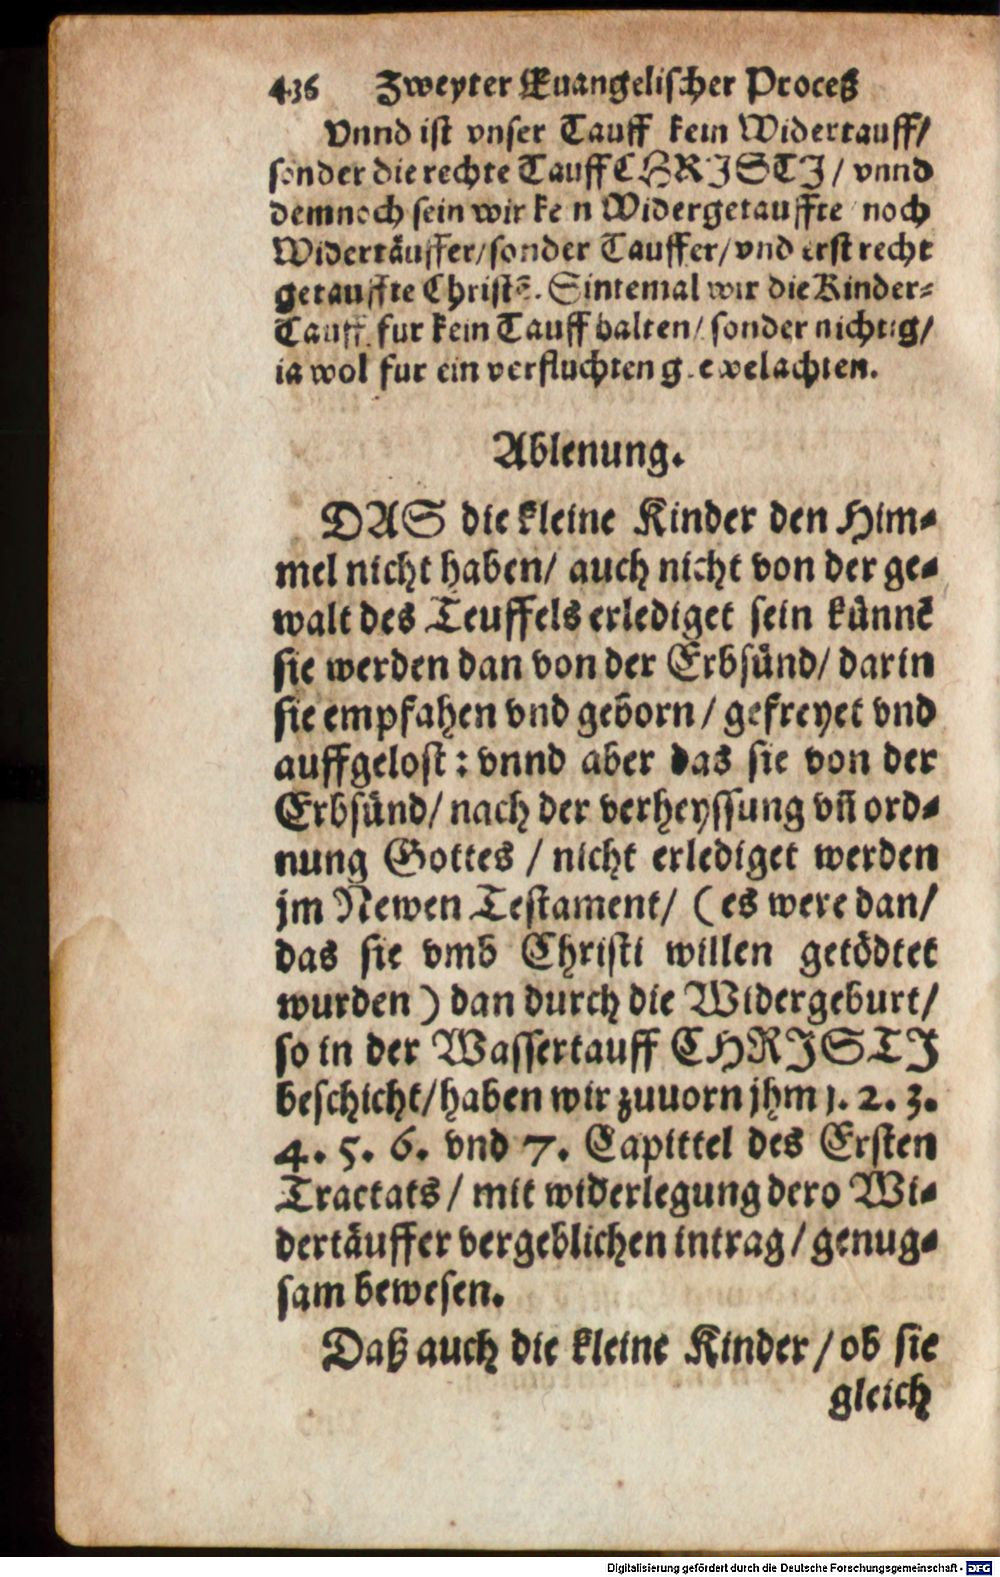 436 Zweyter Euangelischer Proceß
Vnnd ist vnser Tauff kein Widertauff/
sonder die rechte Tauff CHRISTI / vnnd
demnoch sein wir kein Widergetauffte noch
Widertäuffer/sonder Tauffer/vnd erst recht
getauffte Christē. Sintemal wir die Kinder⸗
Tauff fur kein Tauff halten/ sonder nichtig/
ia wol fur ein verfluchten achten.
Ablenung.
DAS die kleine Kinder den Him⸗
mel nicht haben/ auch nicht von der ge⸗
walt des Teuffels erlediget sein künnē
sie werden dan von der Erbsünd/ darin
sie empfahen vnd geborn / gefreyet vnd
auffgelost : vnnd aber das sie von der
Erbsünd/ nach der verheyssung vñ ord⸗
nung Gottes / nicht erlediget werden
jm Newen Testament/ (es were dan/
das sie vmb Christi willen getödtet
wurden ) dan durch die Widergeburt/
so in der Wassertauff CHRISTI
beschicht/haben wir zuuorn jhm 1. 2. 3.
4. 5. 6. vnd 7. Capittel des Ersten
Tractats / mit widerlegung dero Wi⸗
dertäuffer vergeblichen intrag / genug⸗
sam bewesen.
Daß auch die kleine Kinder / ob sie
gleich
Digitalisierung gefördert durch die Deutsche Forschungsgemeinschaft - DFG